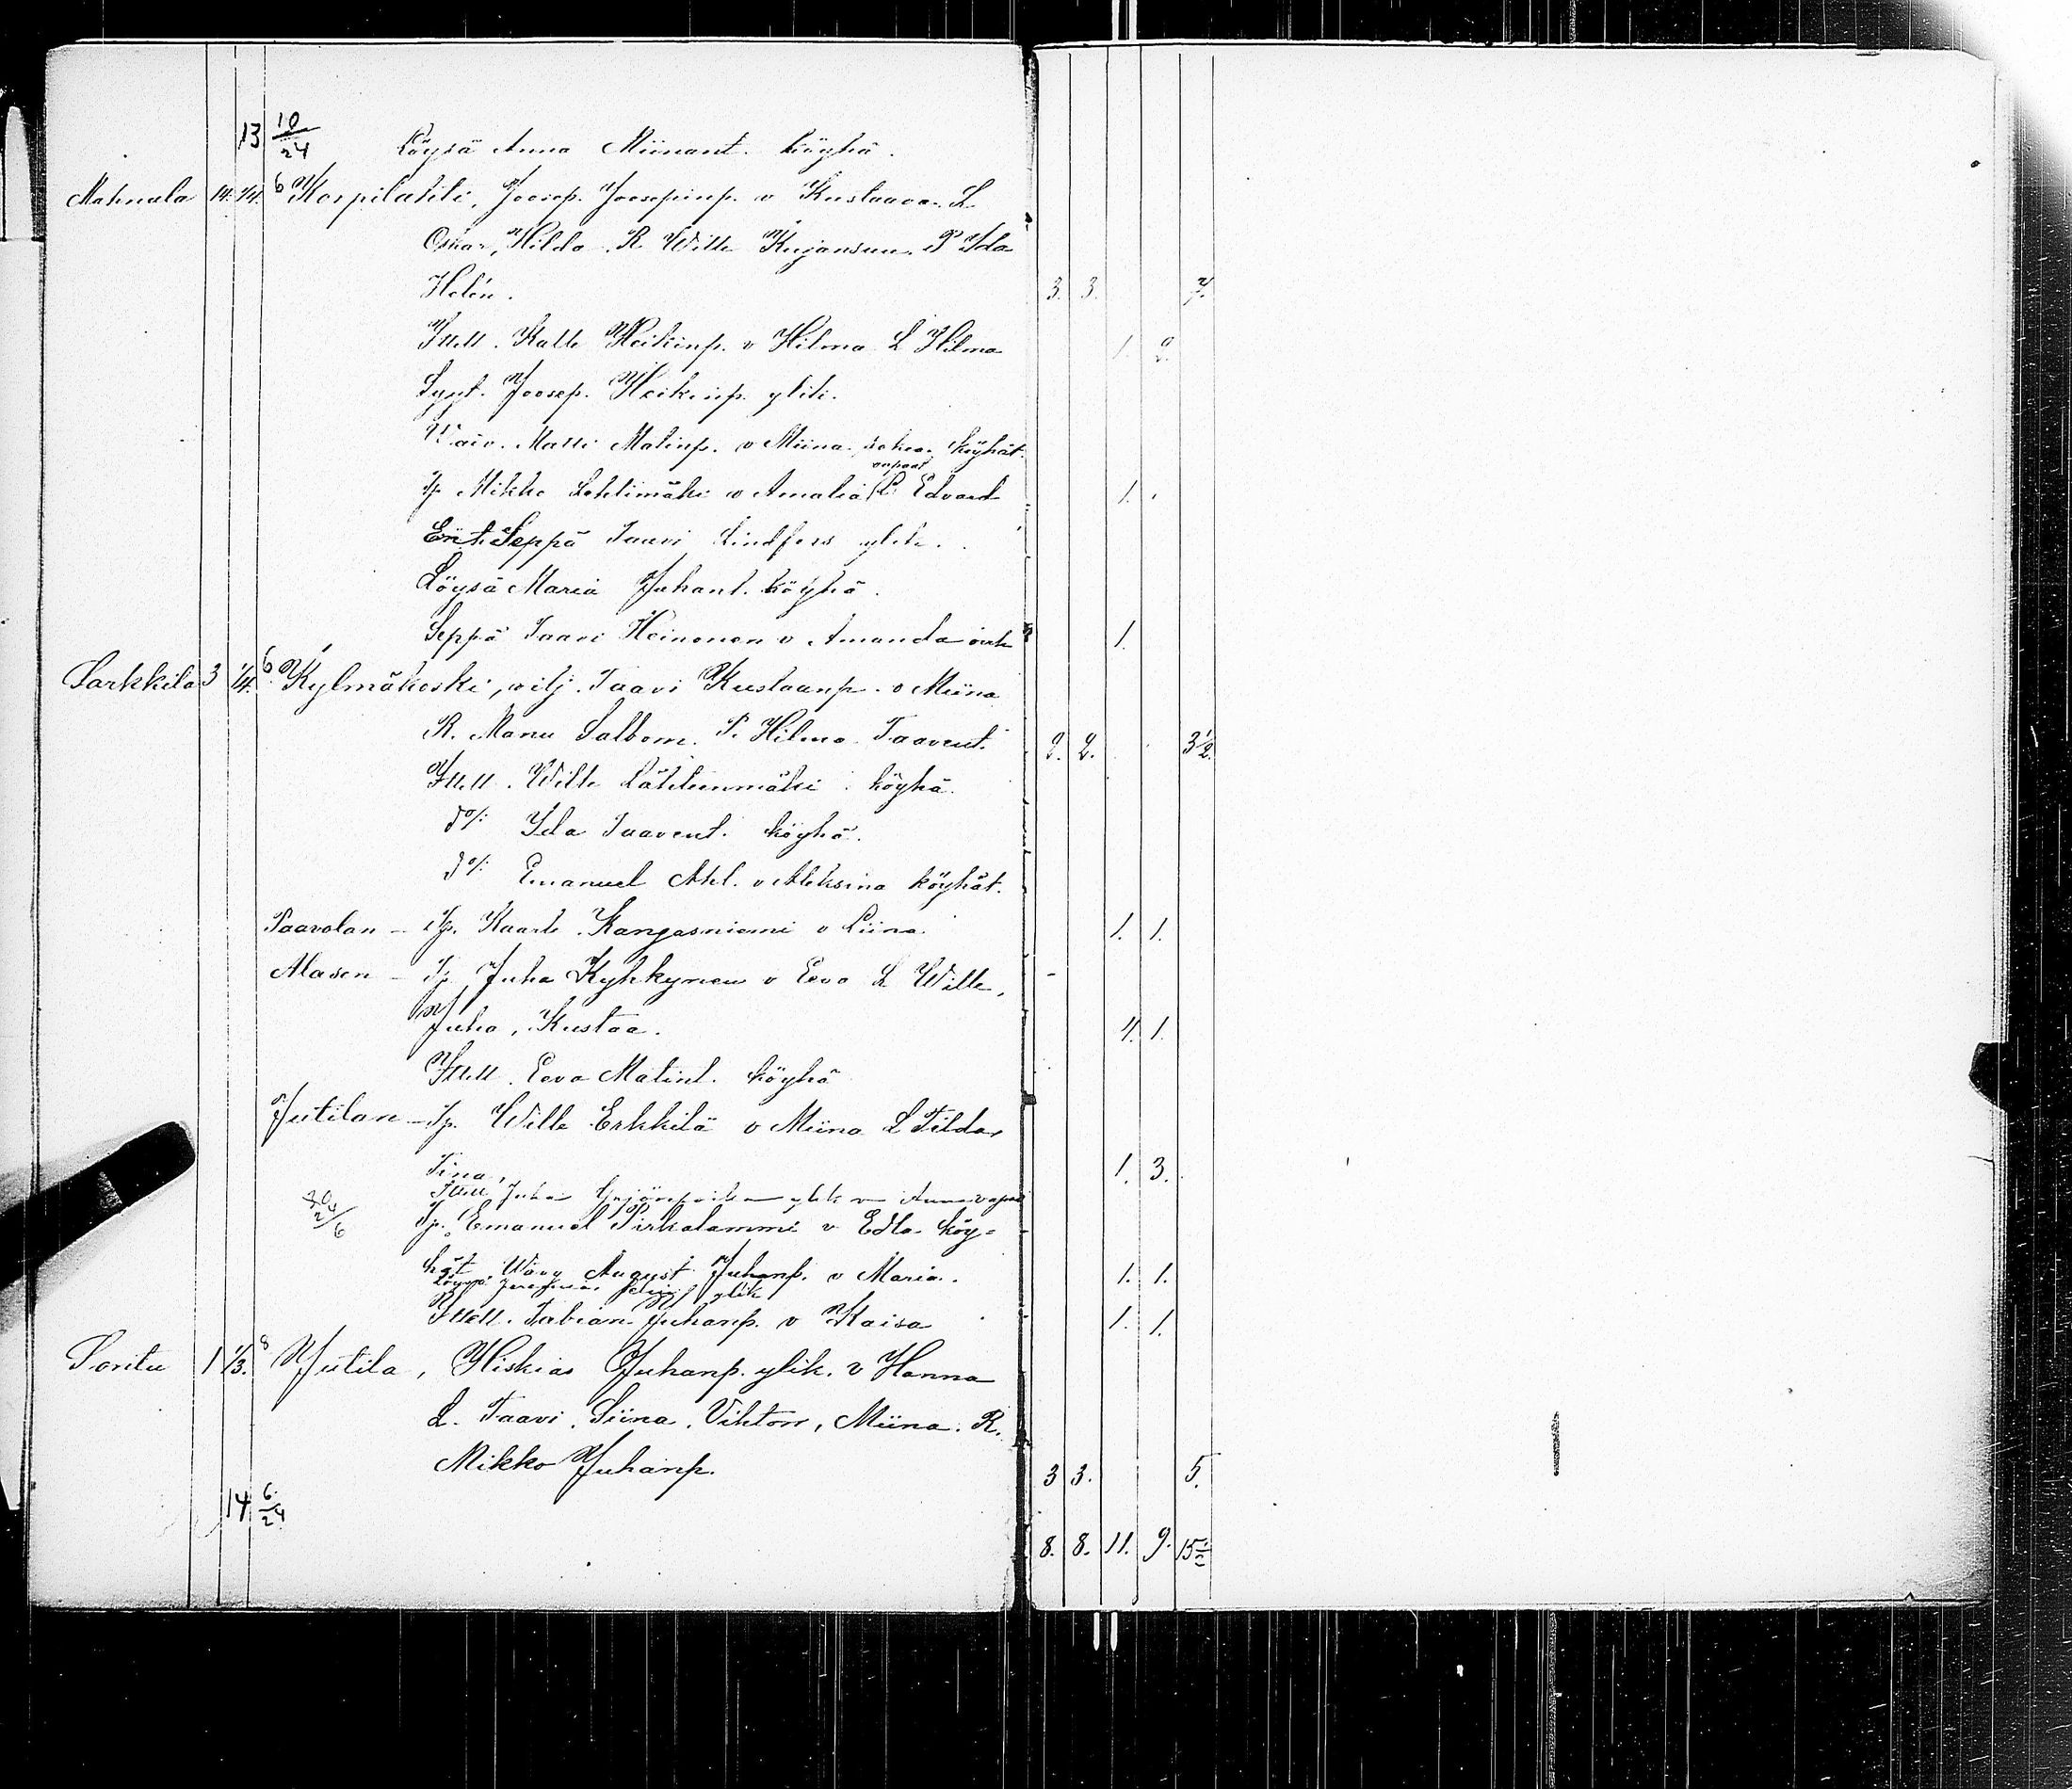 13 10/24 Löysä Anna Miinant. köyhä.
Mahnala 14. 1/4. 6 Korpilahti, Joosep. Joosepinp. v Kustaava. L
Oskar, Hilda. R Wille Kujansuu. P Ida
Helén. 3. 3. 7.
Itsell. Kalle Heikinp. v Hilma L Hilma 1. 2.
Syyt. Joosep. Heikinp. ylik.
Waiv. Matti Matinp. v Miina sokea. köyhät.
vapaat
Tp Mikko Lehtimäki v Amalia L Edvard 1.
Ent. Seppä Taavi Lindfors ylik.
Löysä Maria Juhant. köyhä.
Seppä Taavi Heinonen v Amanda 1.
Sarkkila 3 1/4. 6 Kylmäkoski, vilj. Taavi Kustaanp. v Miina
R. Manu Salbom. P. Hilma Taavent. 2. 2. 3 1/2.
Itsell. Wille Lähteenmäki köyhä.
do/: Ida Taavent. köyhä.
do/: Emanuel Ahl. v Aleksina köyhät.
Paavolan - Tp. Kaarle Kangasniemi v Liina. 1. 1.
Alasen - Tp Juha Kyhkynen v Eeva L Wille,
Juha, Kustaa. 4. 1.
Itsell. Eeva Matint. köyhä
Jutilan - Tp. Wille Erkkilä v Miina L Tilda,
Tina, 1. 3.
Itsell Juha Yrjönpoika ylik v Anna vapaa
Tp. Emanuel Pirkalammi v Edla köy=
hät Wävy August Juhanp. v Maria. 1. 1.
ylik
Itsell. Fabian Juhanp. v Kaisa 1. 1.
Sontu 1 1/3. 8 Jutila, Hiskias Juhanp. ylik. v Hanna
L. Taavi, Siina, Viktorr, Miina. R.
Mikko Juhanp. 3 3. 5.
14 6/24
8. 8. 11. 9. 15 1/2